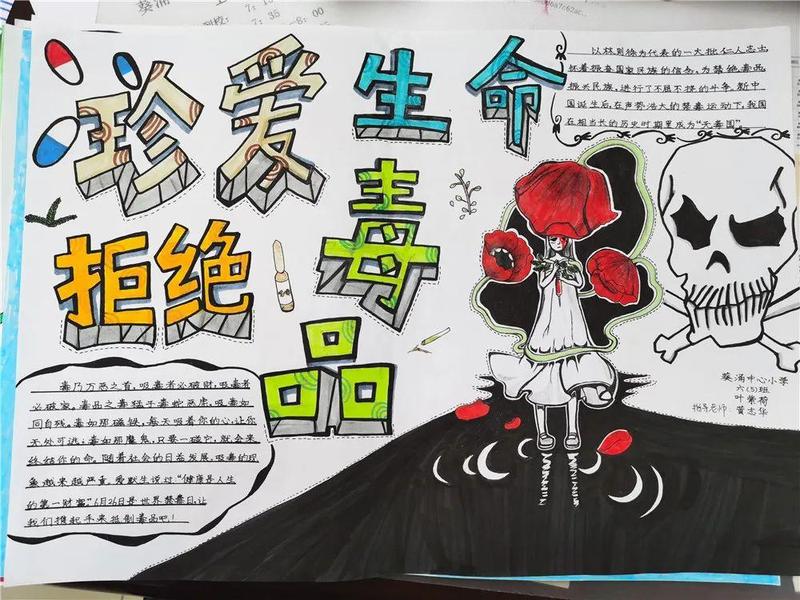 珍爱生命
拒绝毒品
以林则徐为代表的一大批仁人志士,
怀着振奋国家民族的信念,为禁绝毒品,
振兴民族,进行了不屈不挠的斗争。新中
国诞生后,在声势浩大的禁毒运动下,我国
在相当长的历史时期里成为“无毒国”
毒乃万恶之首,吸毒者必破财,吸毒者
必破家。毒品之毒猛于毒蛇恶虎,吸毒如
同自残。毒如那磁铁,每天吸着你的心,让你
无处可逃;毒如那魔鬼,只要一碰它,就会来
终结你的命。随着社会的日益发展,吸毒的现
象越来越严重。爱默生说过:“健康是人生
的第一财富”6月26日是世界禁毒日,让
我们携起手来抵制毒品吧!
葵涌中心小学
六(5)班
叶紫荷
指导老师:黄志华